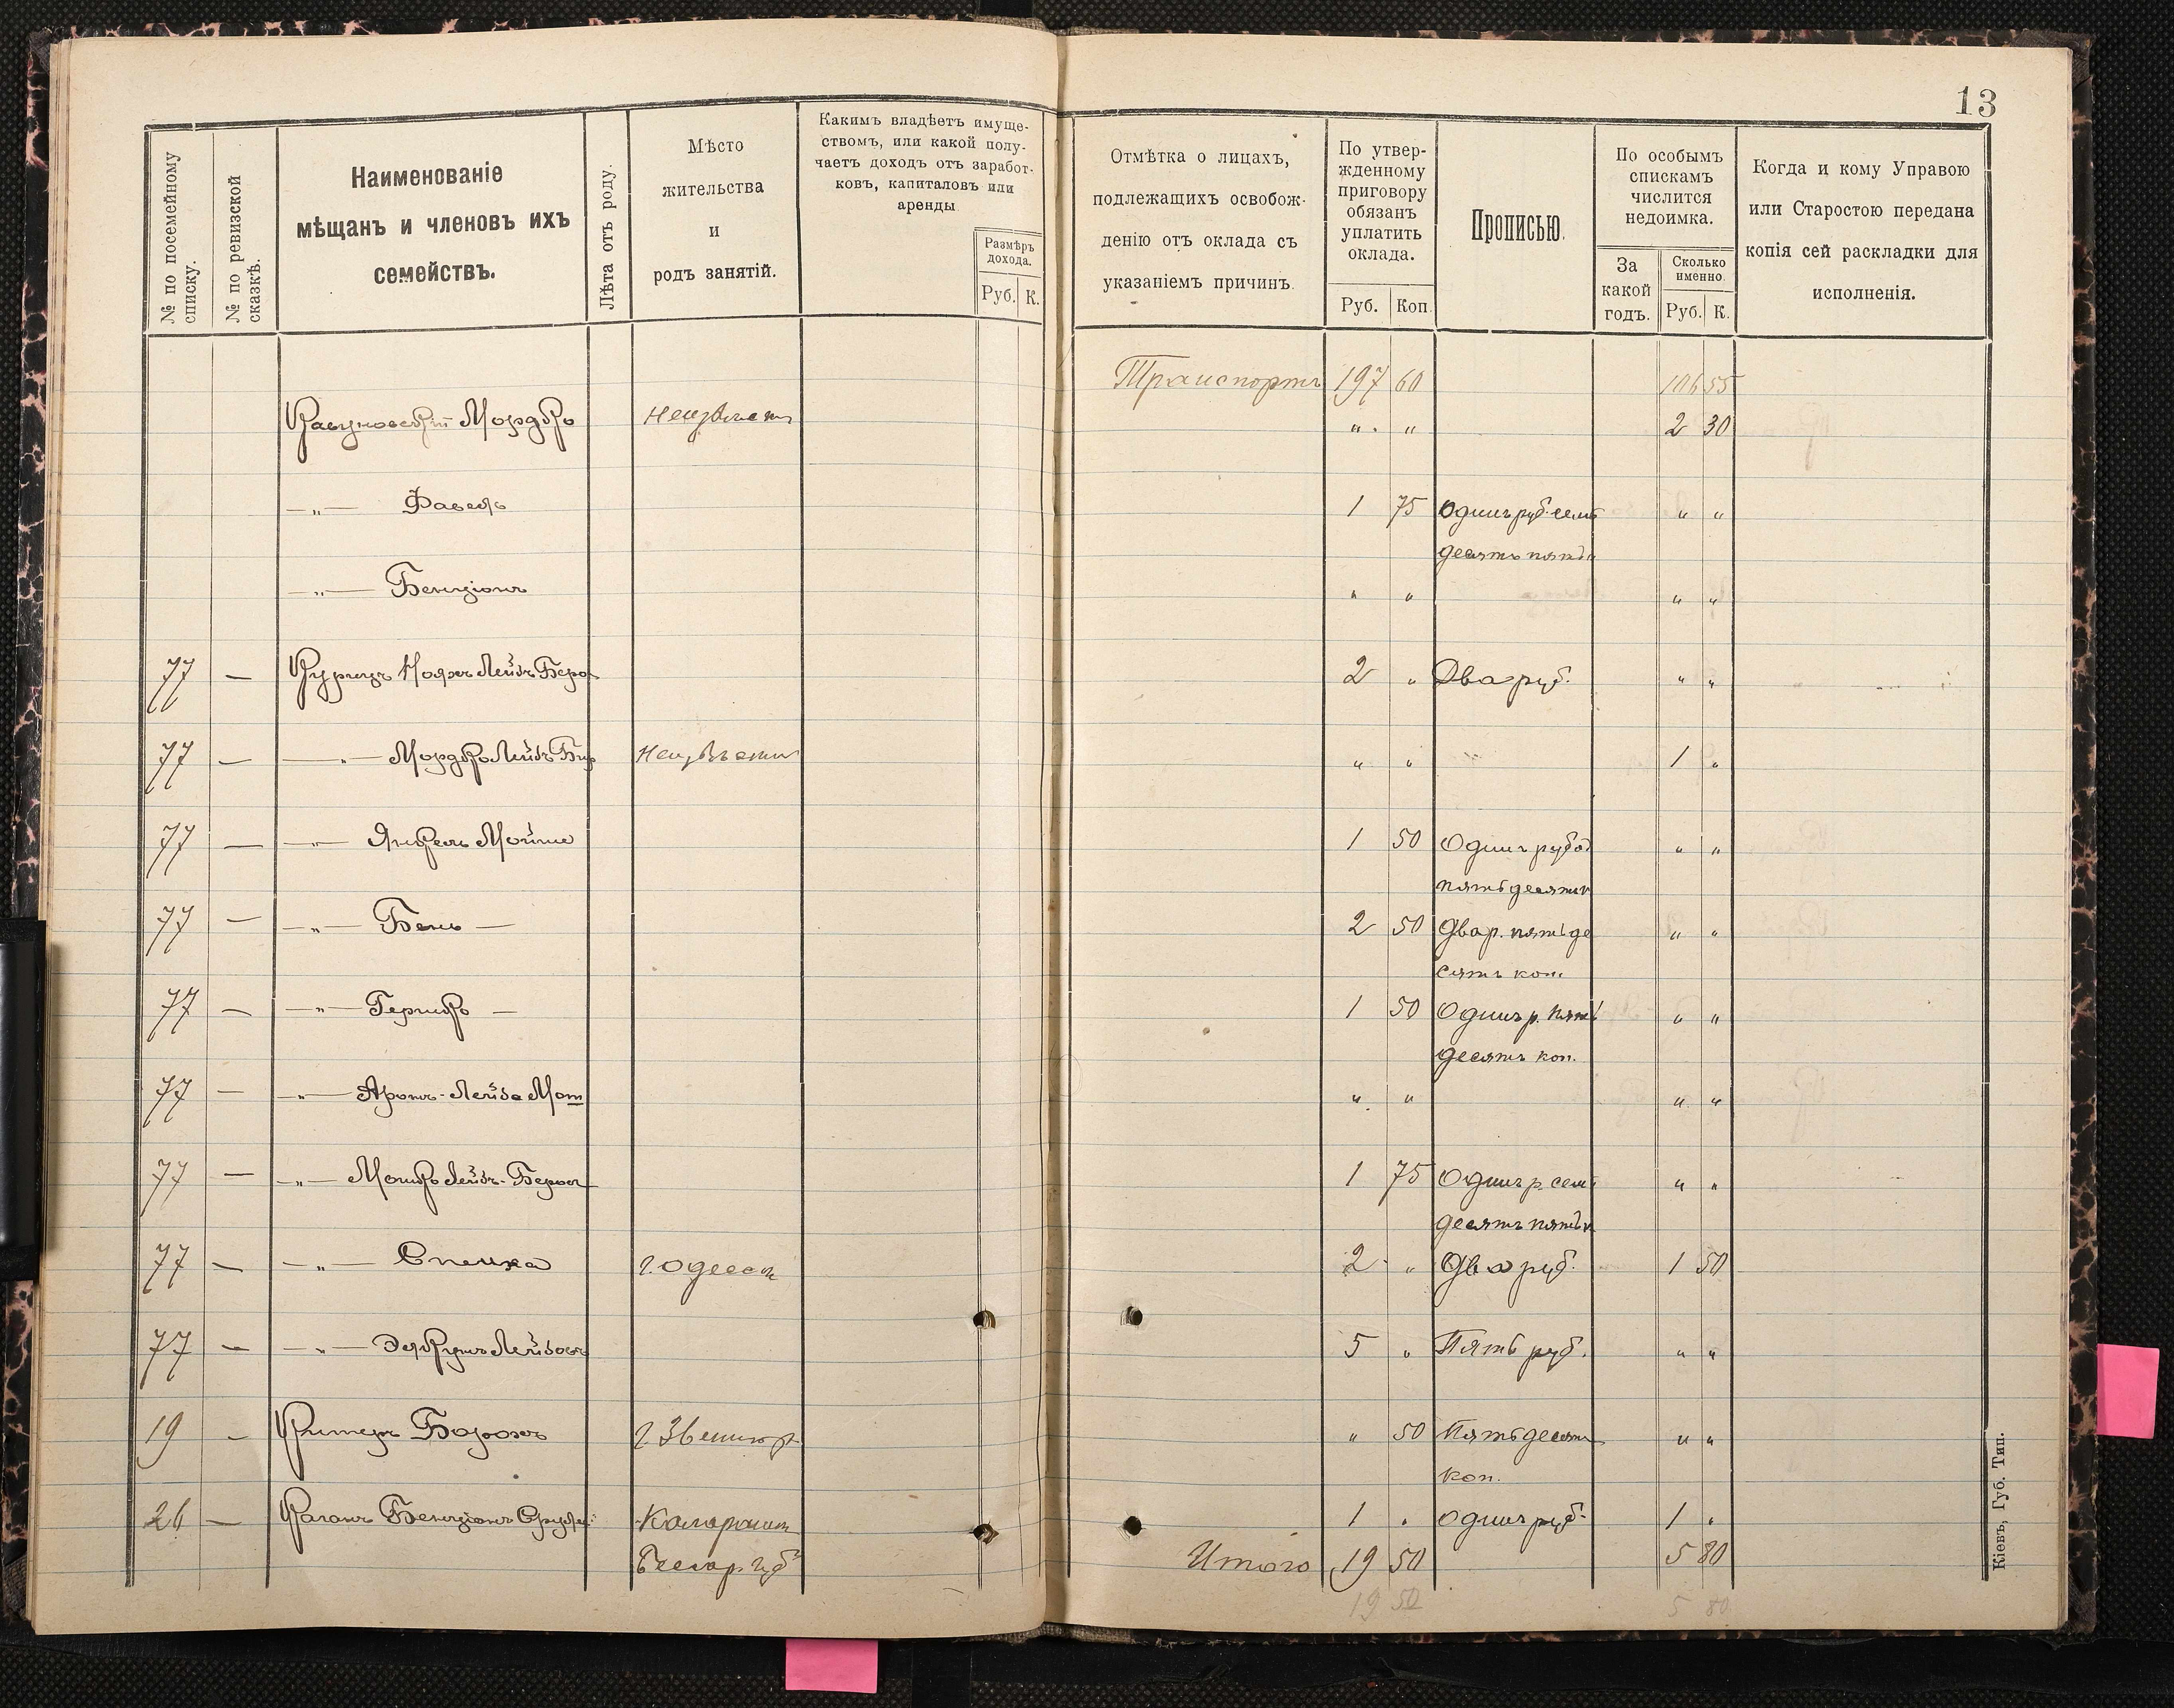 13
№ по посемейному
списку.
№ по ревизской
сказкѣ.
Наименованіе
мѣщанъ и членовъ ихъ
семействъ.
Лѣта отъ роду.
Мѣсто
жительства
и
родъ занятій.
Какимъ владѣетъ имуще-
ствомъ, или какой полу-
чаетъ доходъ отъ заработ-
ковъ, капиталовъ или
аренды
Размѣръ
дохода.
Руб. К.
Отмѣтка о лицахъ,
подлежащихъ освобож-
денію отъ оклада съ
указаніемъ причинъ.
По утвер-
жденному
приговору
обязанъ
уплатить
оклада.
Руб. Коп.
Прописью.
По особымъ
спискамъ
числится
недоимка.
За
какой
годъ.
Сколько
именно.
Руб. К.
Когда и кому Управою
или Старостою передана
копія сей раскладки для
исполненія.
Транспортъ 197 60 106 55
Мордко Неизвѣстн " " 2 30
—"— 1 75 Одинъ руб. семь " "
десять пять
—"— Бенціонъ " " " "
77 — Лейбъ 2 " Два руб. " "
77 — —"— Мордко Лейбъ Неизвѣстн " " 1 "
77 — —"— Янкель Мойше 1 50 Одинъ руб
пятьдесят
77 — —"— Бень — 2 50 Два р. пятьде " "
сятъ коп.
77 — —"— Гершко — 1 50 Одинъ р. пять " "
десятъ коп.
77 — —"— Аронъ-Лейба Мот " " " "
77 — —"— Мошко Лейбъ-Берков 1 75 Одинъ р. семь " "
десятъ пять к
77 — —"— г. Одесса 2 " Два руб. 1 50
77 — —"— Лейбов 5 " Пять руб. " "
19 — Борохъ г Звениг " 50 Пятьдесятъ " "
коп.
26 — Каганъ Бенціонъ Калараш 1 " Одинъ руб. 1 "
Бессар. губ Итого 19 50 5 80
19 50 5 80
Кіевъ, Губ. Тип.